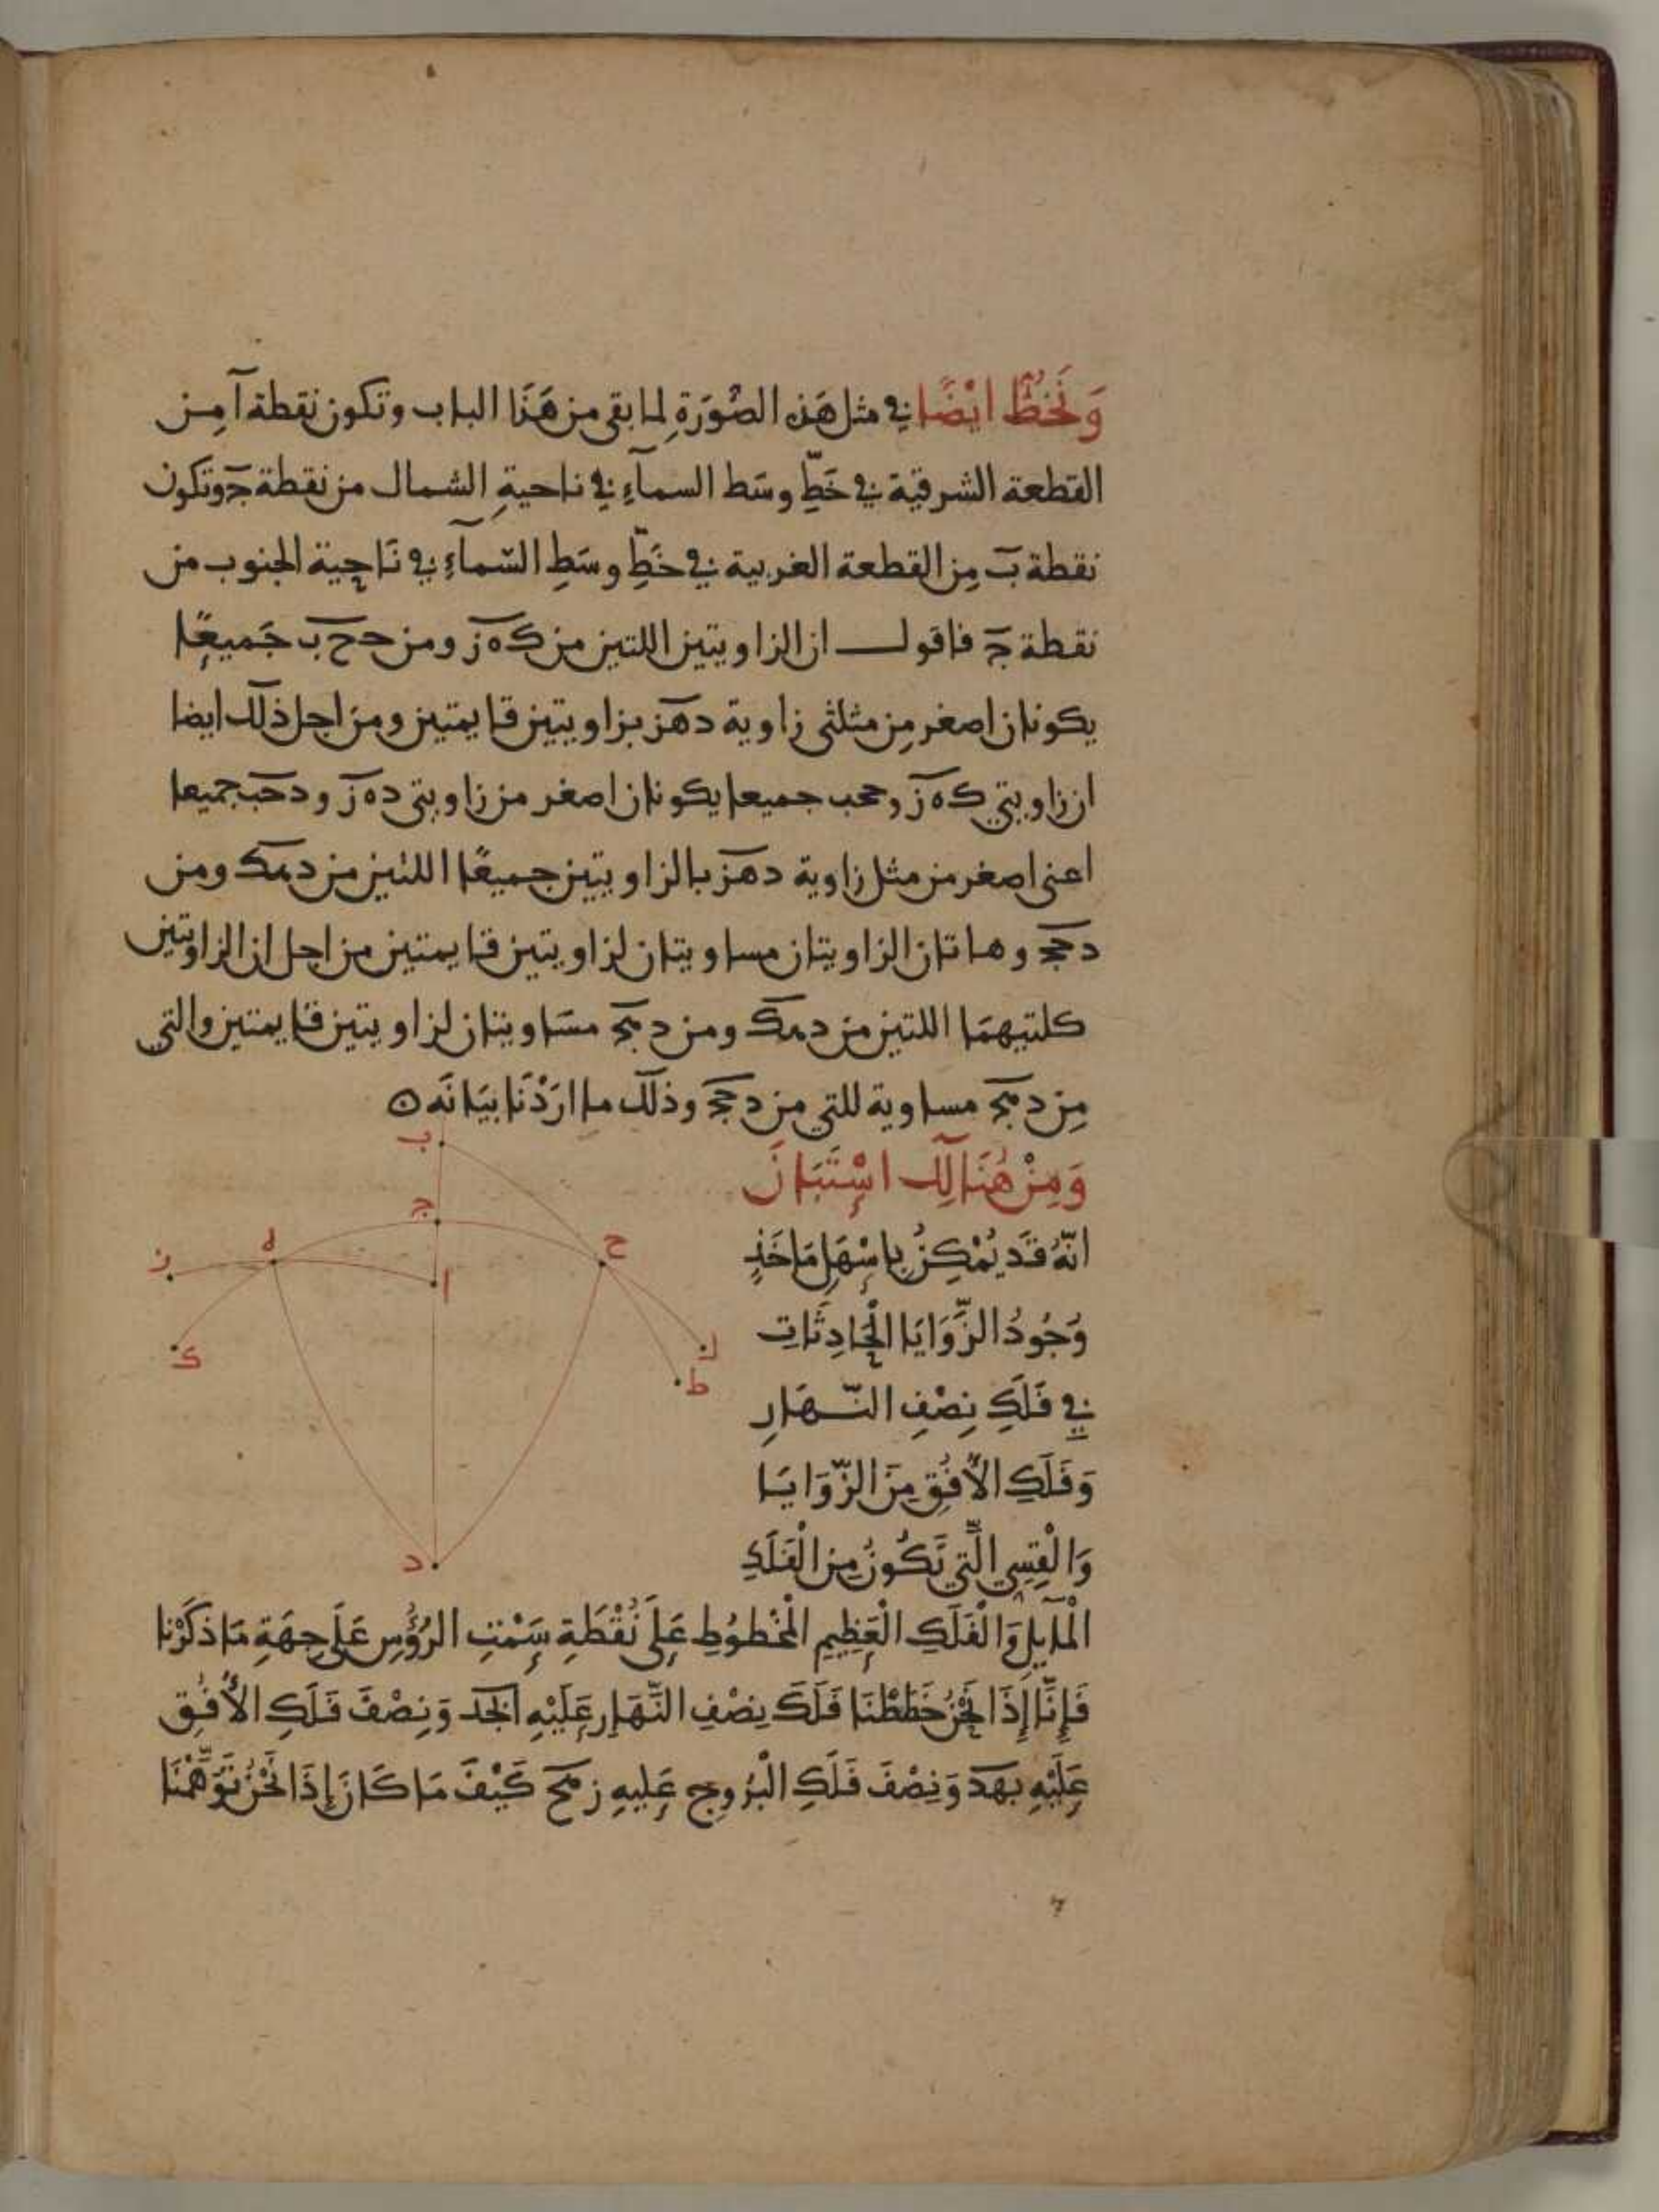 وَنَخُطُّ ايْضًا في مثل هَذه الصُّوَرَةِ لما بقى من هَذَا الباب وتكون نقطة آ مِن
القطعة الشرقية في خَطِّ وسَط السمآءِ في ناحيةِ الشمال من نقطة جَ وتكون
نقطة بَ مِن القطعة الغربية في خَطِّ وسَطِ السّمآءِ في نَاحِية الجنوب من
نقطة جَ فاقول ان الزاويتين اللتين من كَ ه زَ ومن د ح بَ جَميعًا
يكونان اصغر مِن مثلثى زاوية دهز بزاويتين قايمتين ومن اجل ذلك ايضا
ان زاويتي كَ ه زَ وحب جميعا يكونان اصغر من زاويتى د ه زَ ودحب جميعا
اعنى اصغر من مثل زاوية دهز بالزاويتين جميعًا اللتين من دهك ومن
دحج وهاتان الزاويتان مساويتان لزاويتين قايمتين من اجل ان الزاويتين
كلتيهمَا اللتين من دهك ومن دهج مسَاويتان لزاويتين قايمتين والتى
مِن دهج مساوية للتي من دحج وذلك ما ارَدْنَا بيَانَه ن
وَمِنْ هُنَالِكَ اسْتَبَانَ
انّهُ قَد يُمْكِنُ بِاسْهَلِ مَاخَذٍ
وُجُودُ الزَّوَايَا الْحَادِثَاتِ
في فَلَكِ نِصْفِ النّهَارِ
وَفَلَكِ الأُفُقِ مِنَ الزّوَايَا
وَالْقِسِي الَّتِي تَكُونُ مِن الْفَلَكِ
الْمَآيِلِ وَالْفَلَكِ الْعَظِيمِ الْمَخْطُوطِ عَلَى نُقْطَةِ سَمْتِ الرُؤُسِ عَلَى جِهَةِ مَا ذكَرْنا
فَإِنَّا إِذَا نَحْنُ خَطَطْنَا فَلَكَ نِصْفِ النَّهَارِ عَلَيْهِ ابجد وَنِصْفَ فَلَكِ الأُفُقِ
عَلَيْهِ بهد وَنِصْفَ فَلَكِ الْبُرُوجِ عَليهِ زهح كَيْفَ مَا كَانَ إِذَا نَحْنُ تَوَهَّمْنَا
ب
ج
ه
ح
ز
ا
ك
ل
ط
د